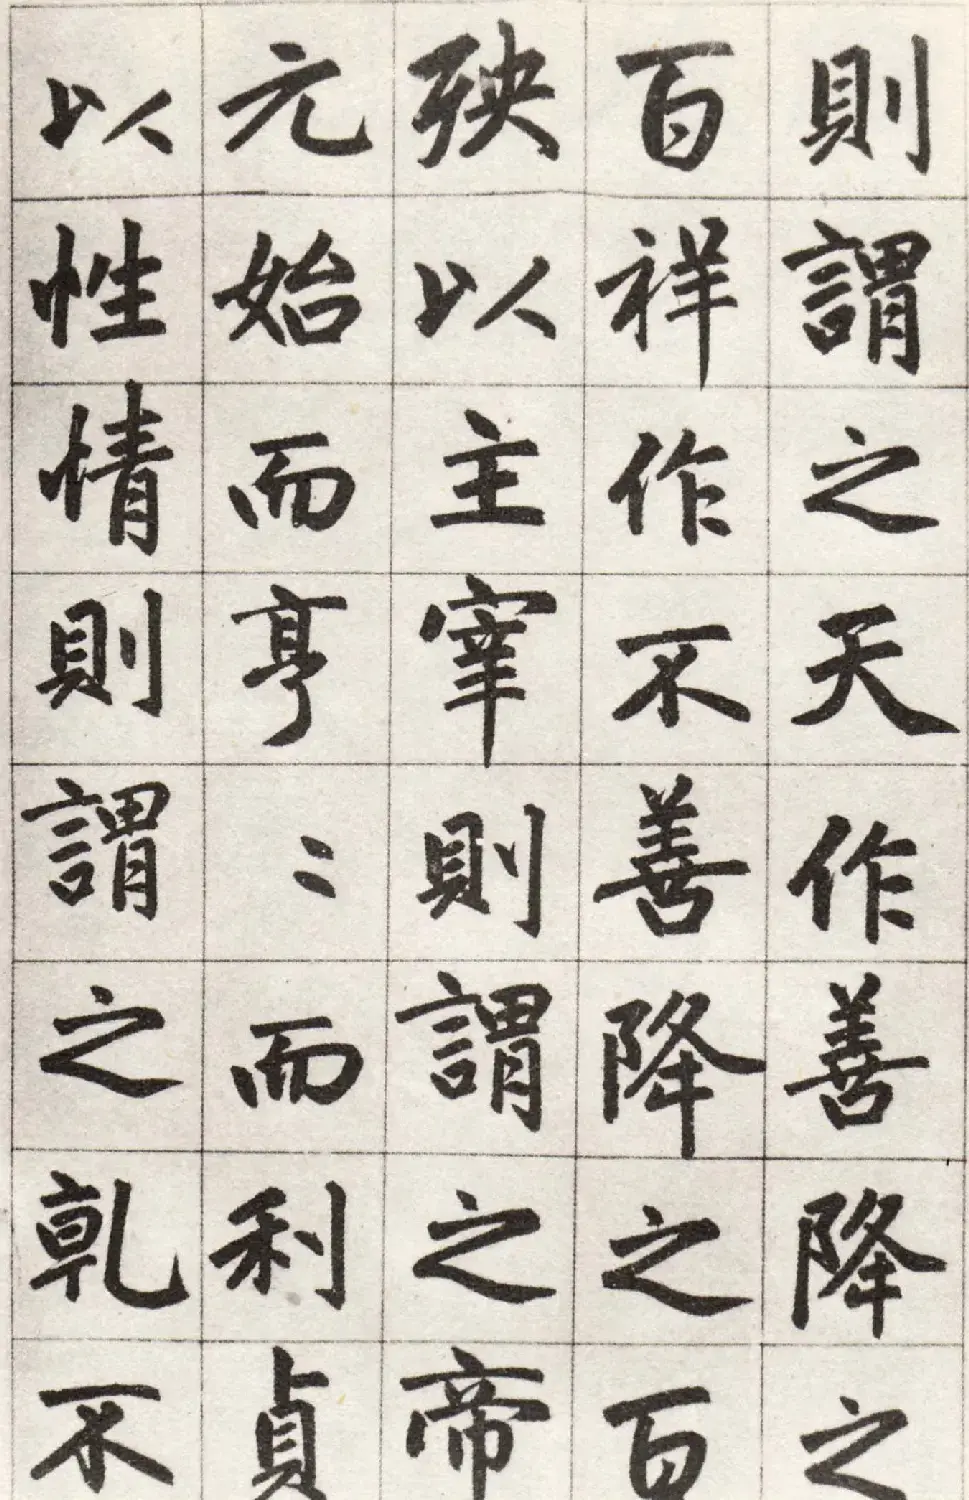 則謂之天作善降之
百祥作不善降之百
殃以主宰則謂之帝
元始而亨〻而利貞
以性情則謂之乹不